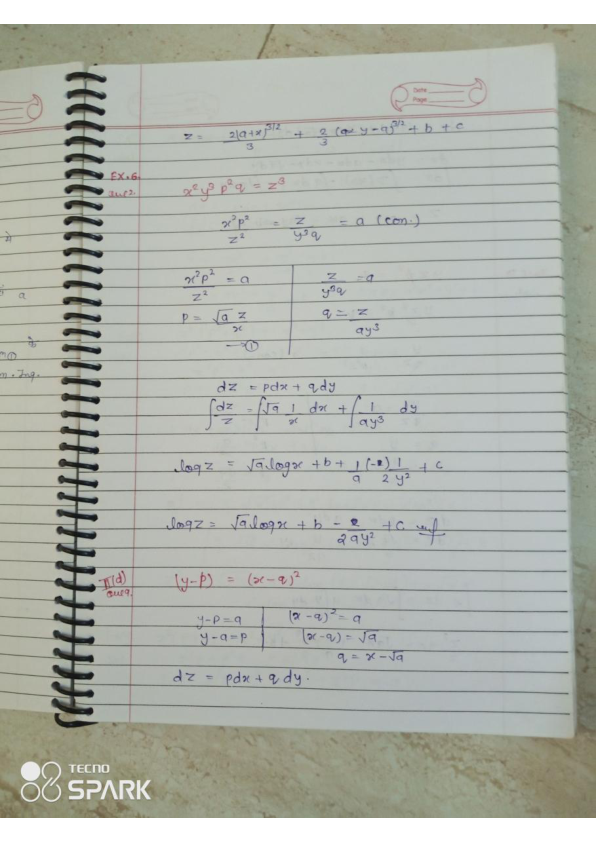 Date
Page
z = 2(a+x)^3/2 / 3 + 2/3 (y-a)^3/2 + b + c
Ex.6.
x² y³ p² q = z³
x²p²/z² = z/y³q = a (con.)
x²p²/z² = a | z/y³q = a
p = √a z/x | q = z/ay³
→①
dz = pdx + qdy
∫dz/z = ∫√a 1/x dx + ∫1/ay³ dy
logz = √a logx + b + 1/a (-) 1/2 1/y² + c
logz = √a logx + b - /2ay² + c
II(d)
(y-p) = (x-q)²
y-p=a | (x-q)² = a
y-a=p | (x-q) = √a
q = x-√a
dz = pdx + qdy.
TECNO
SPARK